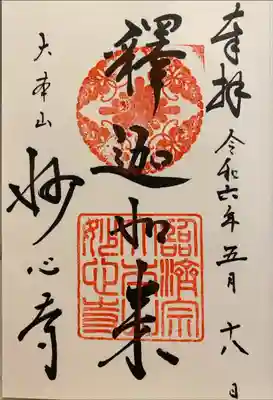 奉拝 令和六年五月十八日
釋迦如来
大本山
妙心寺
臨濟宗
大本山
妙心寺